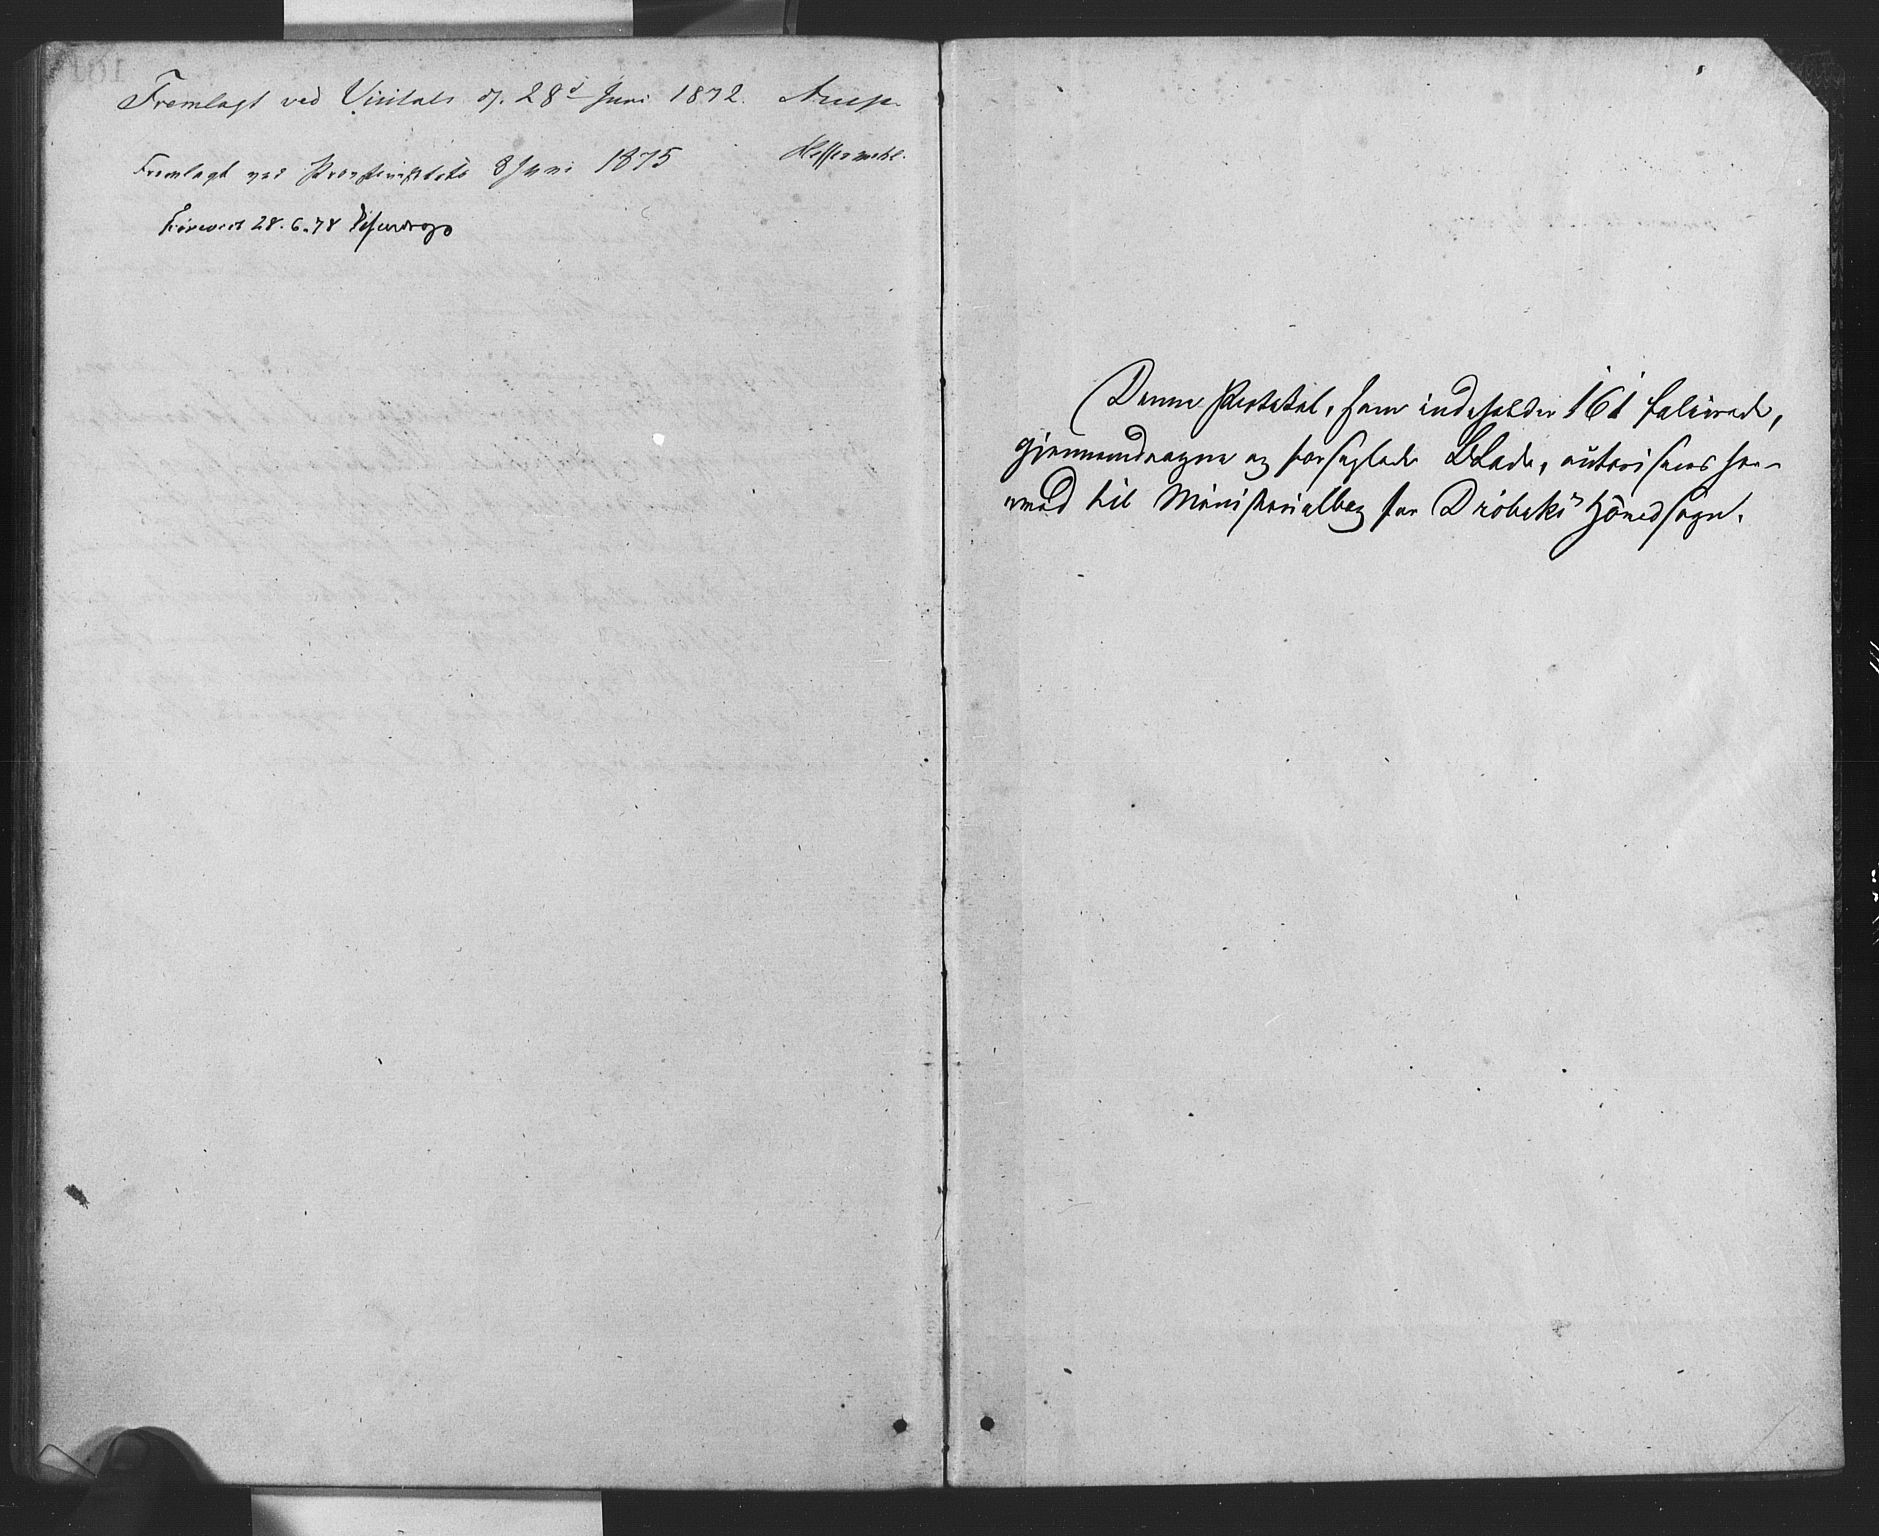 Fremlagt ved Visitats d. 28d Juni 1872. Arup.
Fremlagt ved Provstevisitats 8 Juni 1875 Hoffermehl.
Forevist 28.6.78
Denne Protokol, som indeholder 161 folierede,
gjennemdragne og forseglede Blade, autoriseres her-
med til Ministerialbog for Drøbaks Hovedsogn.